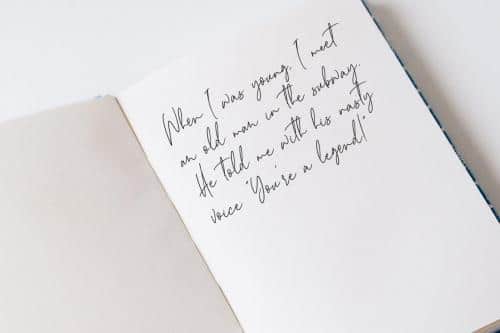 When I was young, I meet
an old man in the subway.
He told me with his nasty
voice "You're a legend!"